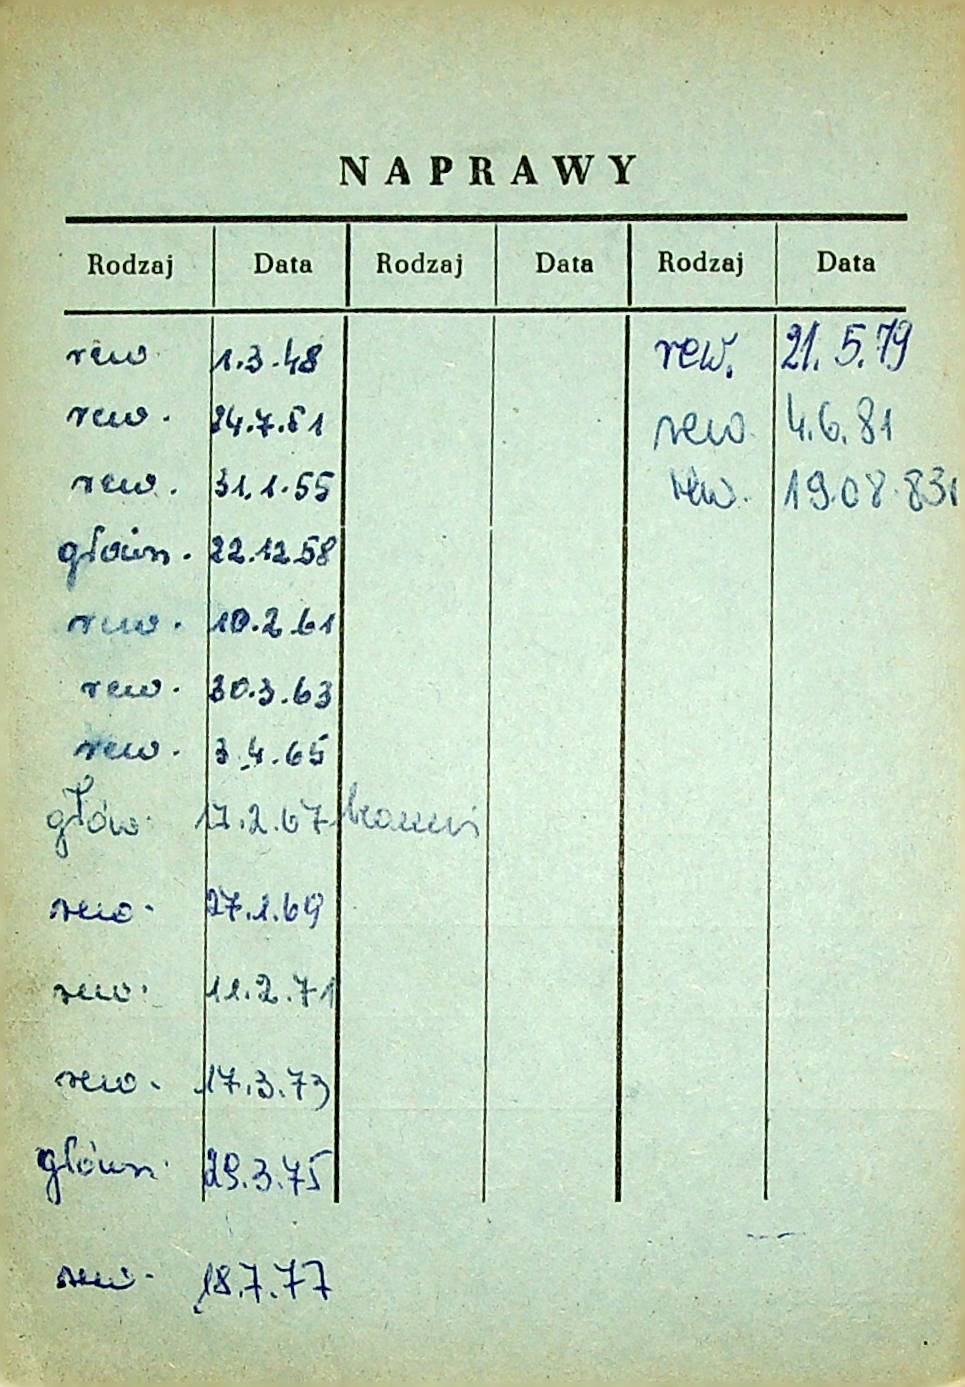 NAPRAWY
Rodzaj Data Rodzaj Data Rodzaj Data
rew. 1.3.48 rew. 21.5.79
rew. 24.7.51 rew. 4.6.81
rew. 31.1.55 rew. 19.08.83
główn. 22.12.58
rew. 10.2.61
rew. 30.3.63
rew. 3.4.65
głów. 17.2.67
rew. 27.1.69
rew. 11.2.71
rew. 17.3.73
główn. 29.3.75
rew. 18.7.77